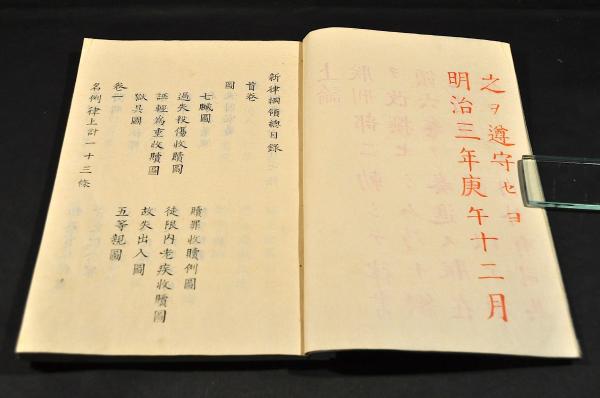 之ヲ遵守セヨ
明治三年庚午十二月
新律綱領總目錄
首卷
圖
七贓圖
贖罪收贖例圖
過失殺傷收贖圖
徒限内老疾收贖圖
誣輕為重收贖圖
故失出入圖
獄具圖
五等親圖
卷一
名例律上計一十三條